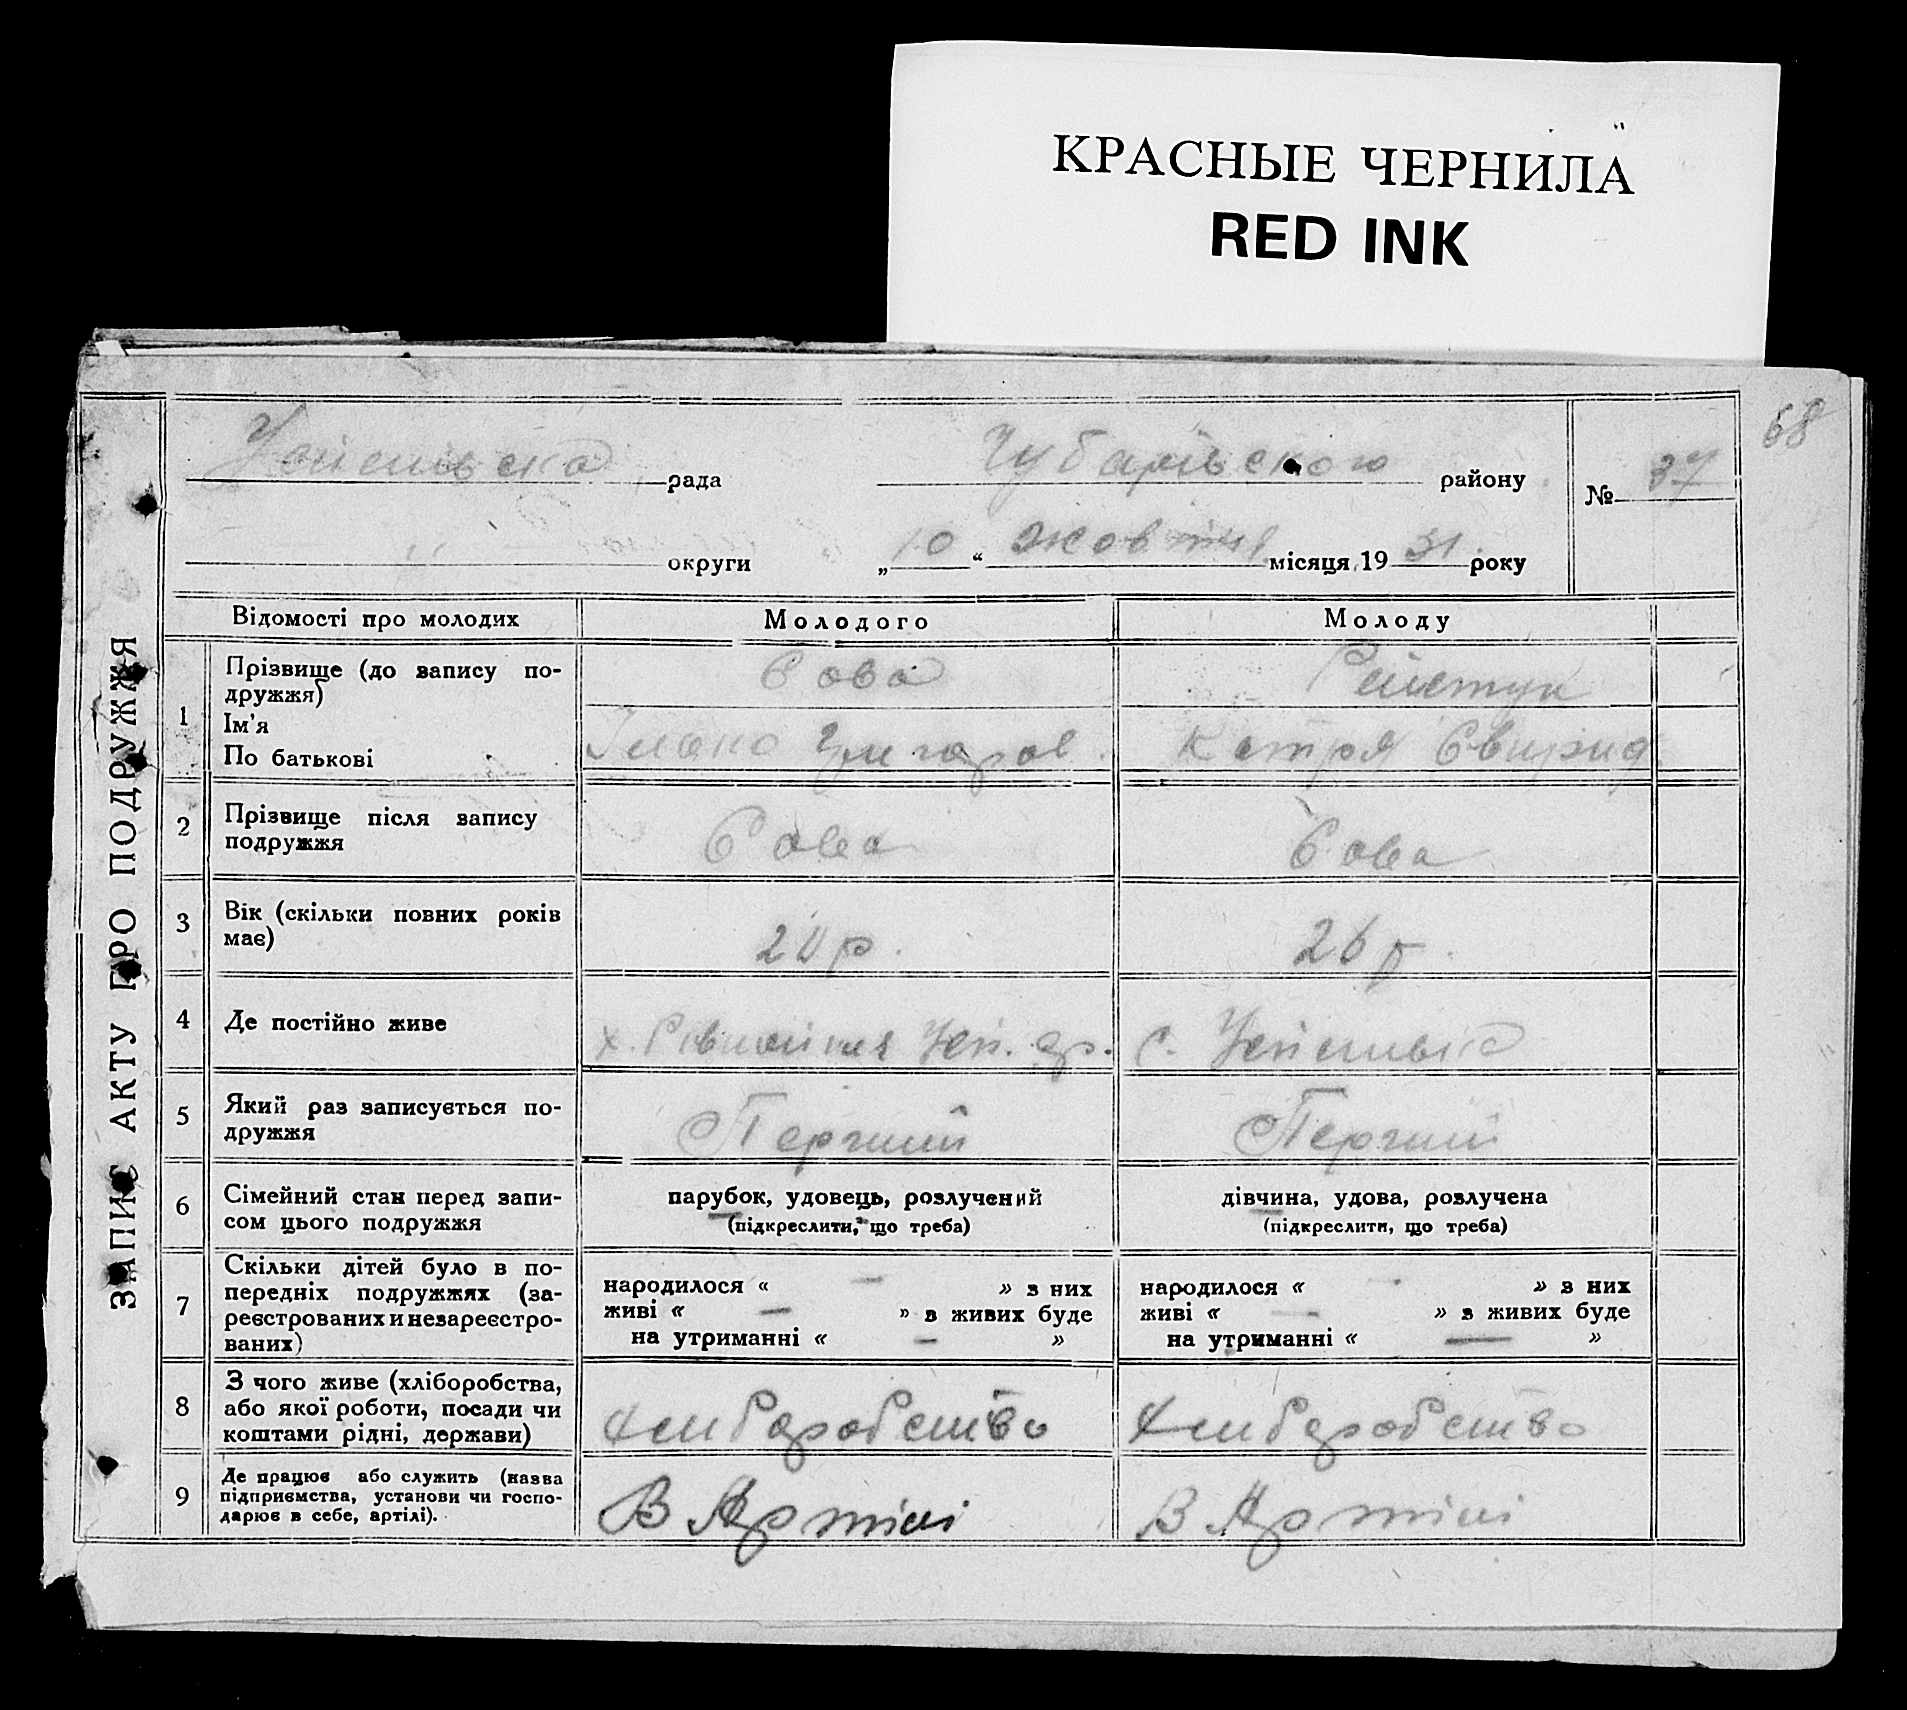 КРАСНЫЕ ЧЕРНИЛА
RED INK
68
рада Чубарівського району № 37
округи „10“ жовтня місяця 1931 року
ЗАПИС АКТУ ПРО ПОДРУЖЖЯ
Відомості про молодих Молодого Молоду
1 Прізвище (до запису по-
дружжя) Сова
Ім'я
По батькові Григоров. Катря Свирид
2 Прізвище після запису
подружжя Сова Сова
3 Вік (скільки повних років
має) р. 26 р.
4 Де постійно живе х. с.
5 Який раз записується по-
дружжя Перший Перший
6 Сімейний стан перед запи-
сом цього подружжя
парубок, удовець, розлучений дівчина, удова, розлучена
(підкреслити, що треба) (підкреслити, що треба)
7 Скільки дітей було в по-
передніх подружжях (за-
реєстрованих и незареєстро-
ваних)
народилося « — » з них народилося « — » з них
живі « — » в живих буде живі « — » з живих буде
на утриманні « — » на утриманні « — »
8 З чого живе (хліборобства,
або якої роботи, посади чи
коштами рідні, держави) Хлиборобство Хлиборобство
9 Де працює або служить (назва
підприємства, установи чи госпо-
дарює в себе, артілі). В Артілі В Артілі